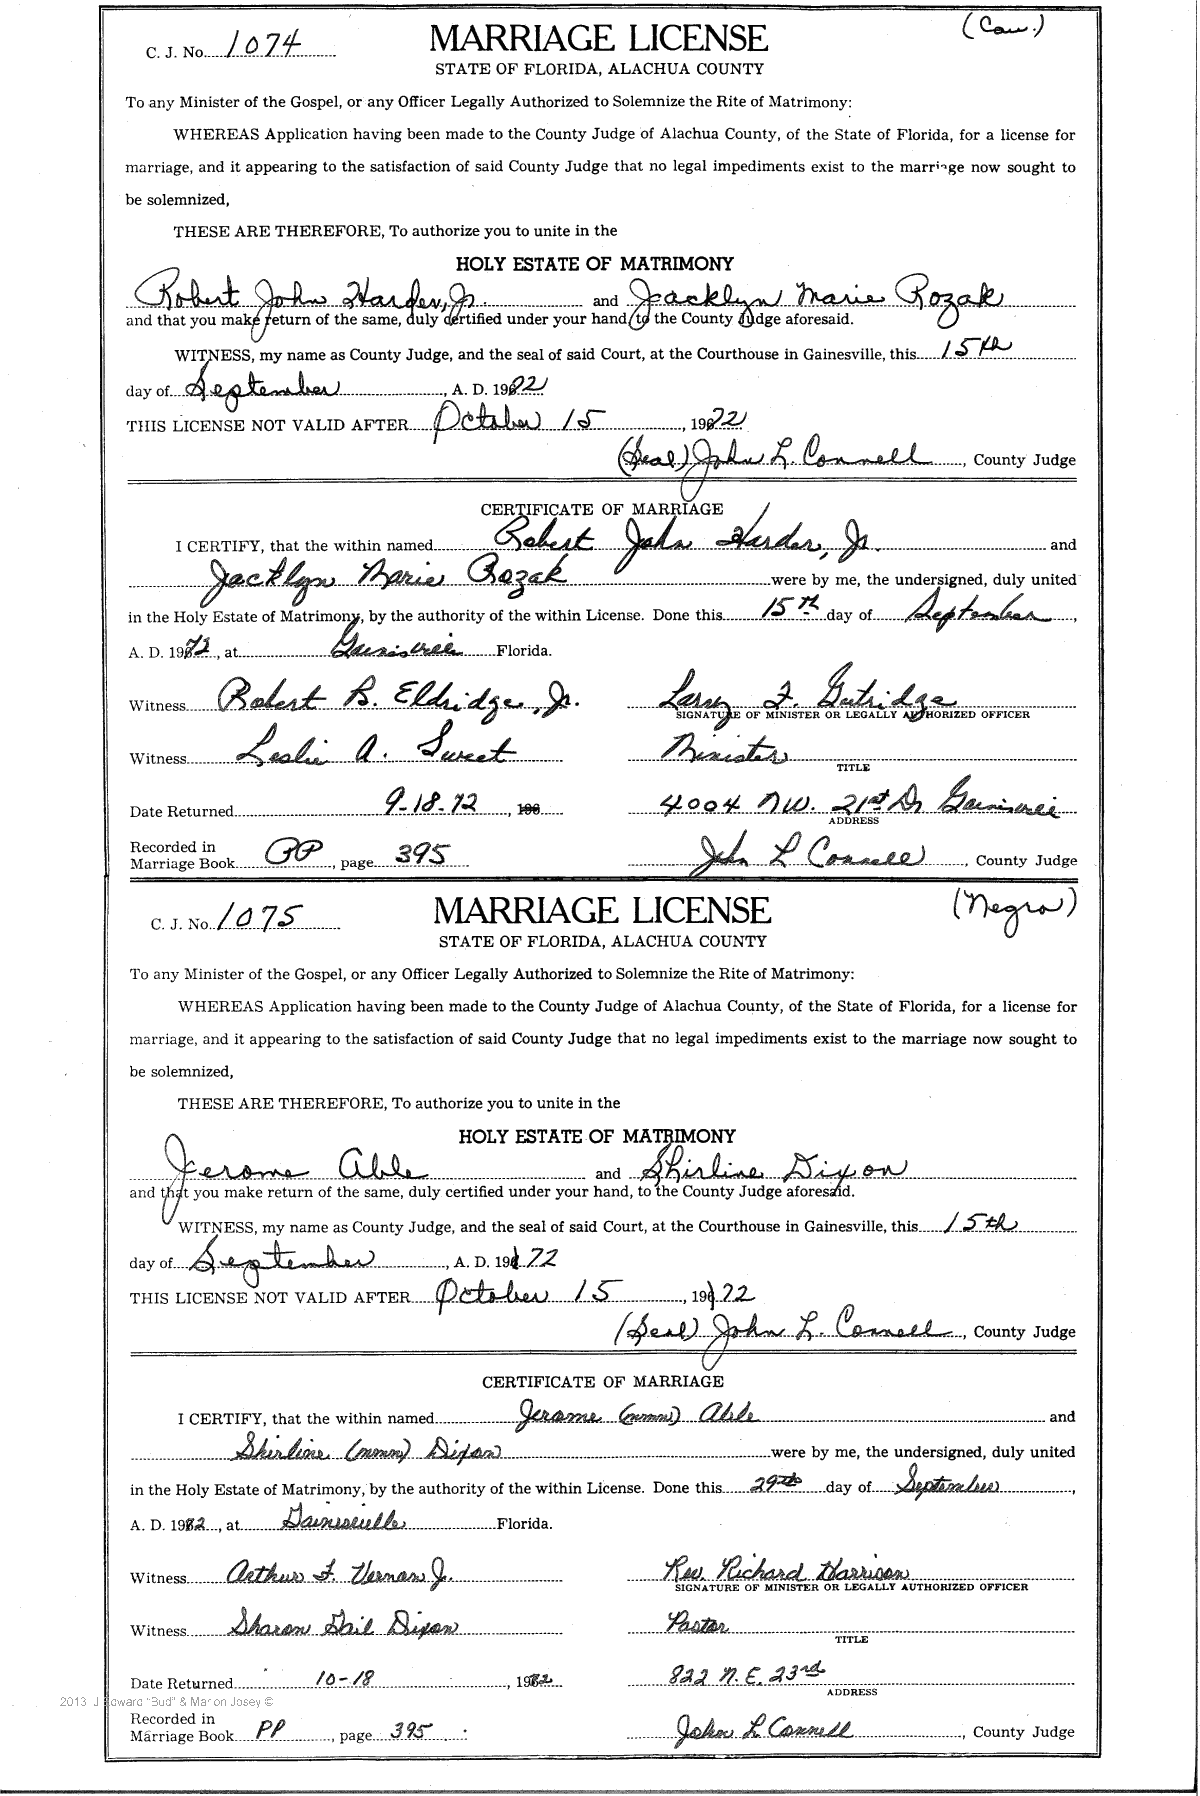 (Cau.)
C. J. No. 1074 MARRIAGE LICENSE
STATE OF FLORIDA, ALACHUA COUNTY
To any Minister of the Gospel, or any Officer Legally Authorized to Solemnize the Rite of Matrimony:
WHEREAS Application having been made to the County Judge of Alachua County, of the State of Florida, for a license for
marriage, and it appearing to the satisfaction of said County Judge that no legal impediments exist to the marriage now sought to
be solemnized,
THESE ARE THEREFORE, To authorize you to unite in the
HOLY ESTATE OF MATRIMONY
Robert John Harder, Jr. and Jacklyn Marie Rozak
and that you make return of the same, duly certified under your hand, to the County Judge aforesaid.
WITNESS, my name as County Judge, and the seal of said Court, at the Courthouse in Gainesville, this 15th
day of September, A. D. 1972
THIS LICENSE NOT VALID AFTER October 15, 1972
(Seal) John L. Connell, County Judge
CERTIFICATE OF MARRIAGE
I CERTIFY, that the within named Robert John Harder, Jr. and
Jacklyn Marie Rozak were by me, the undersigned, duly united
in the Holy Estate of Matrimony, by the authority of the within License. Done this 15th day of September,
A. D. 1972, at Gainesville Florida.
Witness Robert B. Eldridge, Jr. Larry F. Gutridge
SIGNATURE OF MINISTER OR LEGALLY AUTHORIZED OFFICER
Witness Leslie A. Sweet Minister
TITLE
Date Returned 9-18-72, 196 4004 N.W. 21st Dr Gainesville
ADDRESS
Recorded in
Marriage Book PP, page 395 John L Connell, County Judge
(Negro)
C. J. No. 1075 MARRIAGE LICENSE
STATE OF FLORIDA, ALACHUA COUNTY
To any Minister of the Gospel, or any Officer Legally Authorized to Solemnize the Rite of Matrimony:
WHEREAS Application having been made to the County Judge of Alachua County, of the State of Florida, for a license for
marriage, and it appearing to the satisfaction of said County Judge that no legal impediments exist to the marriage now sought to
be solemnized,
THESE ARE THEREFORE, To authorize you to unite in the
HOLY ESTATE OF MATRIMONY
Jerome Able and Shirline Dixon
and that you make return of the same, duly certified under your hand, to the County Judge aforesaid.
WITNESS, my name as County Judge, and the seal of said Court, at the Courthouse in Gainesville, this 15th
day of September, A. D. 1972
THIS LICENSE NOT VALID AFTER October 15, 1972
(Seal) John L. Connell, County Judge
CERTIFICATE OF MARRIAGE
I CERTIFY, that the within named Jerome (nmn) Able and
Shirline (nmn) Dixon were by me, the undersigned, duly united
in the Holy Estate of Matrimony, by the authority of the within License. Done this 29th day of September,
A. D. 1972, at Gainesville Florida.
Witness Arthur F. Vernon Jr. Rev. Richard Harrison
SIGNATURE OF MINISTER OR LEGALLY AUTHORIZED OFFICER
Witness Sharon Gail Dixon Pastor
TITLE
Date Returned 10-18, 1972 822 N.E. 23rd
ADDRESS
2013 J Edward "Bud" & Marion Josey ©
Recorded in
Marriage Book PP, page 395 John L Connell, County Judge